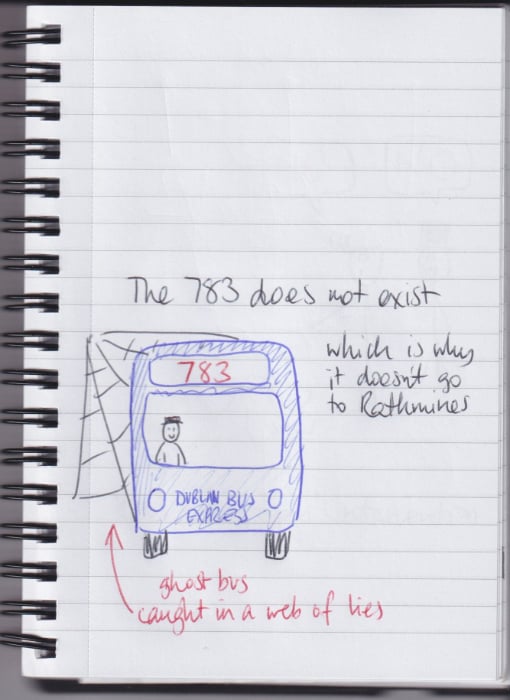 The 783 does not exist
which is why
it doesn't go
to Rathmines
783
DUBLIN BUS
EXPRESS
ghost bus
caught in a web of lies